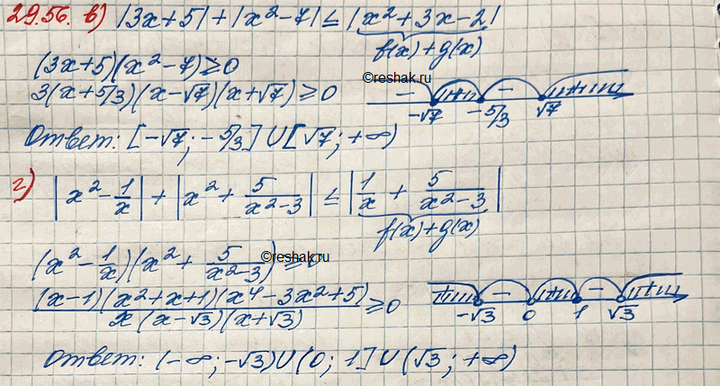 29.56. в) |3x+5| + |x²-7| ≤ |x²+3x-2|
f(x)+g(x)
(3x+5)(x²-7) ≥ 0
©reshak.ru
3(x+5/3)(x-√7)(x+√7) ≥ 0
- + - +
-√7 -5/3 √7
Ответ: [-√7; -5/3] U [√7; +∞)
г) |x² - 1/x| + |x² + 5/(x²-3)| ≤ |1/x + 5/(x²-3)|
f(x)+g(x)
(x² - 1/x)(x² + 5/(x²-3)) ≥ 0
©reshak.ru
(x-1)(x²+x+1)(x⁴-3x²+5)/(x(x-√3)(x+√3)) ≥ 0
+ - + - +
-√3 0 1 √3
Ответ: (-∞; -√3) U (0; 1] U (√3; +∞)